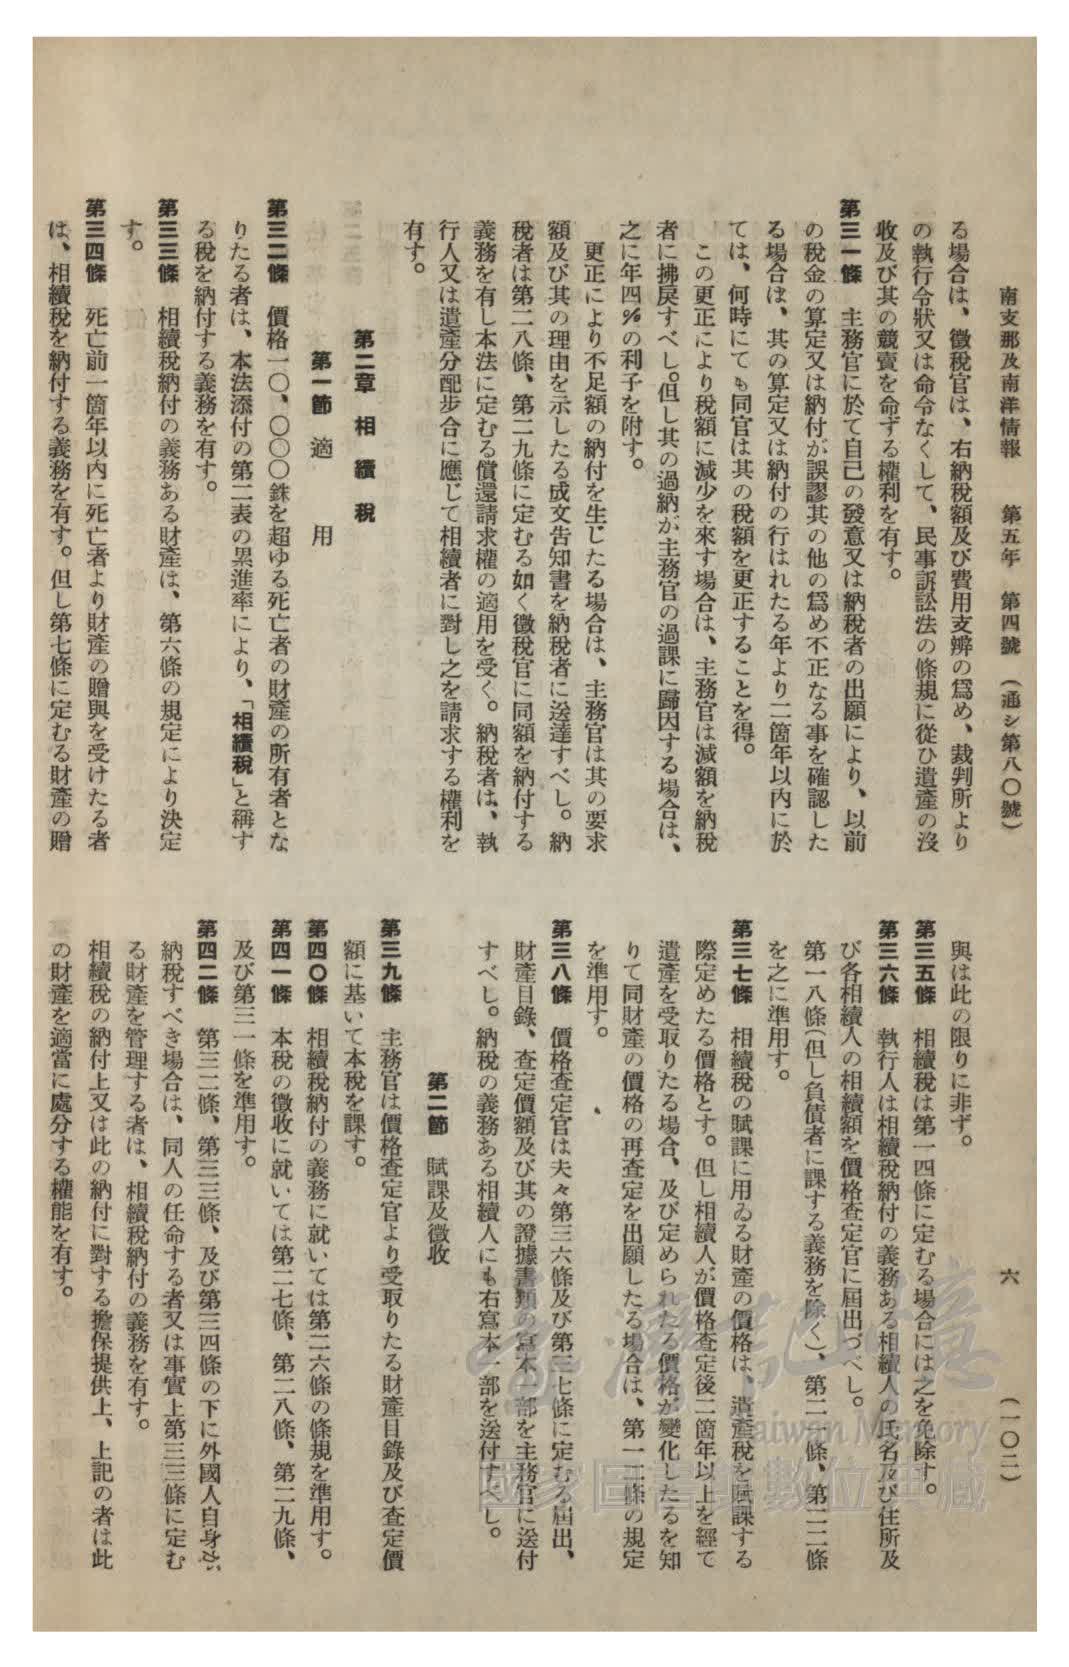 南支那及南洋情報　第五年　第四號　(通シ第八〇號)　六　(一〇二)
る場合は、徵稅官は、右納稅額及び費用支辨の爲め、裁判所より
の執行令狀又は命令なくして、民事訴訟法の條規に從ひ遺產の沒
收及び其の競賣を命ずる權利を有す。
第三一條　主務官に於て自己の發意又は納稅者の出願により、以前
の稅金の算定又は納付が誤謬其の他の爲め不正なる事を確認した
る場合は、其の算定又は納付の行はれたる年より二箇年以內に於
ては、何時にても同官は其の稅額を更正することを得。
この更正により稅額に減少を來す場合は、主務官は減額を納稅
者に拂戾すべし。但し其の過納が主務官の過課に歸因する場合は、
之に年四%の利子を附す。
更正により不足額の納付を生じたる場合は、主務官は其の要求
額及び其の理由を示したる成文告知書を納稅者に送達すべし。納
稅者は第二八條、第二九條に定むる如く徵稅官に同額を納付する
義務を有し本法に定むる償還請求權の適用を受く。納稅者は、執
行人又は遺產分配步合に應じて相續者に對し之を請求する權利を
有す。
第二章　相續稅
第一節　適用
第三二條　價格一〇、〇〇〇銖を超ゆる死亡者の財產の所有者とな
りたる者は、本法添付の第二表の累進率により、「相續稅」と稱す
る稅を納付する義務を有す。
第三三條　相續稅納付の義務ある財產は、第六條の規定により決定
す。
第三四條　死亡前一箇年以內に死亡者より財產の贈與を受けたる者
は、相續稅を納付する義務を有す。但し第七條に定むる財產の贈
與は此の限りに非ず。
第三五條　相續稅は第一四條に定むる場合には之を免除す。
第三六條　執行人は相續稅納付の義務ある相續人の氏名及び住所及
び各相續人の相續額を價格查定官に屆出づべし。
第一八條(但し負債者に課する義務を除く)、第二一條、第二二條
を之に準用す。
第三七條　相續稅の賦課に用ゐる財產の價格は、遺產稅を賦課する
際定めたる價格とす。但し相續人が價格查定後二箇年以上を經て
遺產を受取りたる場合、及び定められたる價格が變化したるを知
りて同財產の價格の再查定を出願したる場合は、第一一條の規定
を準用す。
第三八條　價格查定官は夫々第三六條及び第三七條に定むる屆出、
財產目錄、查定價額及び其の證據書類の寫本一部を主務官に送付
すべし。納稅の義務ある相續人にも右寫本一部を送付すべし。
第二節　賦課及徵收
第三九條　主務官は價格查定官より受取りたる財產目錄及び查定價
額に基いて本稅を課す。
第四〇條　相續稅納付の義務に就いては第二六條の條規を準用す。
第四一條　本稅の徵收に就いては第二七條、第二八條、第二九條、
及び第三一條を準用す。
第四二條　第三二條、第三三條、及び第三四條の下に外國人自身が
納稅すべき場合は、同人の任命する者又は事實上第三三條に定む
る財產を管理する者は、相續稅納付の義務を有す。
相續稅の納付上又は此の納付に對する擔保提供上、上記の者は此
の財產を適當に處分する權能を有す。
臺灣記憶
Taiwan Memory
國家圖書館數位典藏